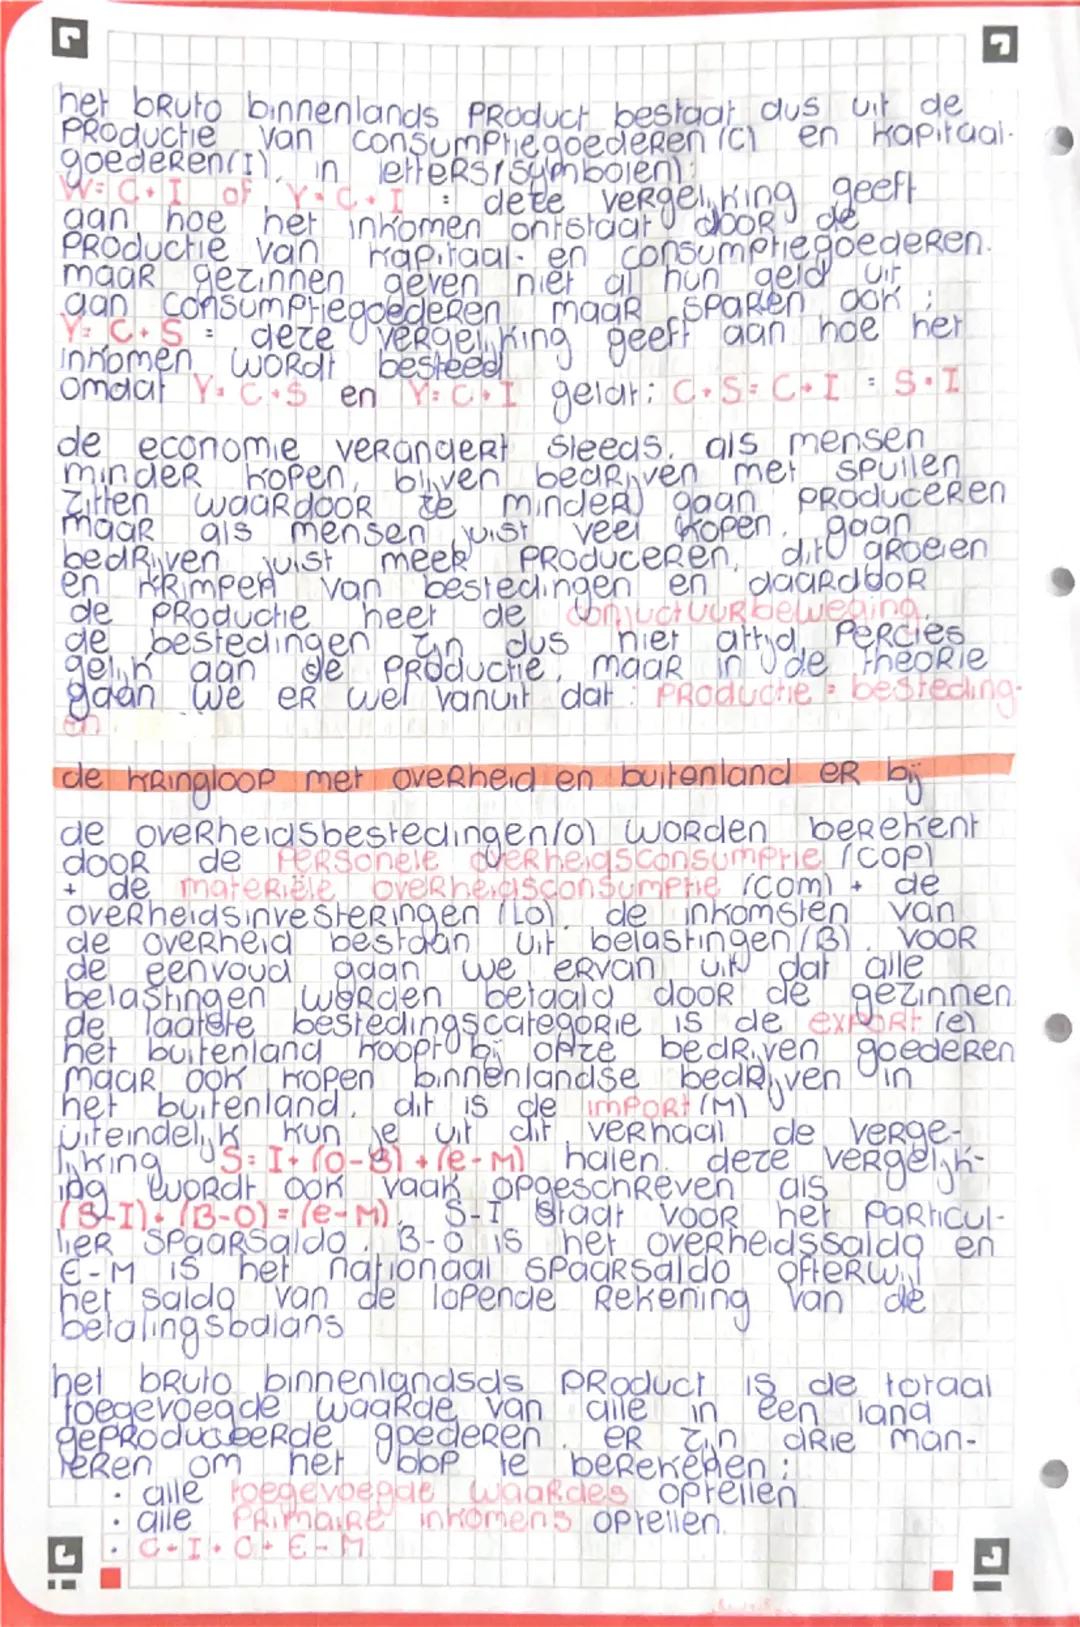 het bruto binnenlands product bestaat dus uit de
productie van consumptiegoederen (C) en kapitaal-
goederen (I). in letters/symbolen):
W = C + I of Y = C + I : deze vergelijking geeft
aan hoe het inkomen ontstaat door de
productie van kapitaal- en consumptiegoederen.
maar gezinnen geven niet al hun geld uit
aan consumptiegoederen maar sparen ook;
Y = C + S = deze vergelijking geeft aan hoe het
inkomen wordt besteed
omdat Y = C + S en Y = C + I geldt: C + S = C + I = S = I
de economie verandert steeds. als mensen
minder kopen, blijven bedrijven met spullen
zitten waardoor ze minder gaan produceren
maar als mensen juist veel kopen, gaan
bedrijven juist meer produceren. dit groeien
en krimpen van bestedingen en daardoor
de productie heet de conjuctuurbeweging.
de bestedingen zijn dus niet altijd percies
gelijk aan de productie, maar in de theorie
gaan we er wel vanuit dat: productie = besteding-
en
de kringloop met overheid en buitenland er bij
de overheidsbestedingen (O) worden berekent
door de personele overheidsconsumptie (COP)
+ de materiële overheidsconsumptie (COM) + de
overheidsinvesteringen (LO). de inkomsten van
de overheid bestaan uit belastingen (B). voor
de eenvoud gaan we ervan uit dat alle
belastingen worden betaald door de gezinnen
de laatste bestedingscategorie is de export (e)
het buitenland koopt bij onze bedrijven goederen
maar ook kopen binnenlandse bedrijven in
het buitenland. dit is de import (M)
uiteindelijk kun je uit dit verhaal de verge-
lijking S = I + (O-B) + (e-M) halen. deze vergelijk-
ing wordt ook vaak opgeschreven als
(S-I) + (B-O) = (e-M). S-I staat voor het particul-
lier spaarsaldo. B-O is het overheidssaldo en
E-M is het nationaal spaarsaldo ofterwijl
het saldo van de lopende rekening van de
betalingsbalans
het bruto binnenlandsds product is de totaal
toegevoegde waarde van alle in een land
geproduceerde goederen. er zijn drie man-
ieren om het bbp te berekenen:
· alle toegevoegde waardes optellen
· alle primaire inkomens optellen.
· C + I + O + E - M